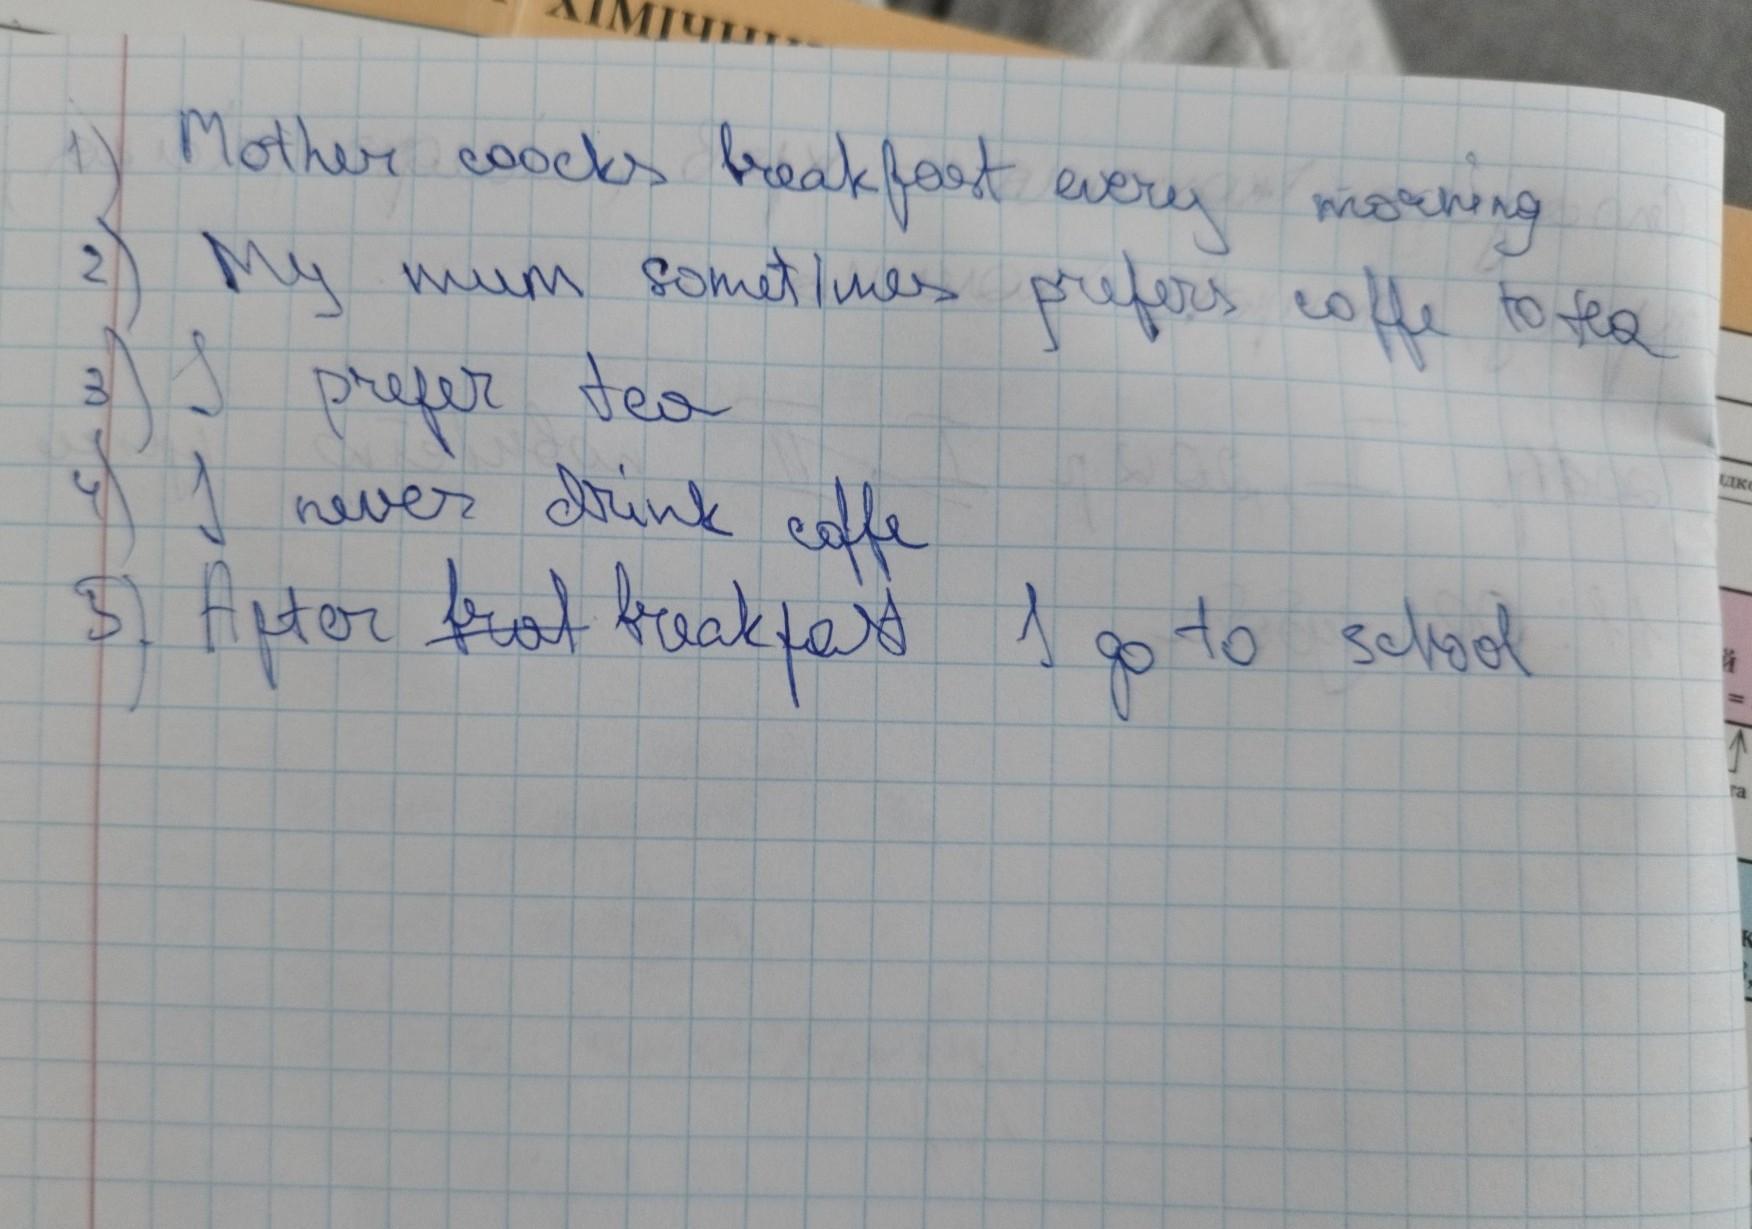 ХІМІЧНИ
1) Mother coocks breakfast every morning
2) My mum sometimes prefers coffe to tea
3) I prefer tea
4) I never drink coffe
5) After brat breakfast I go to school